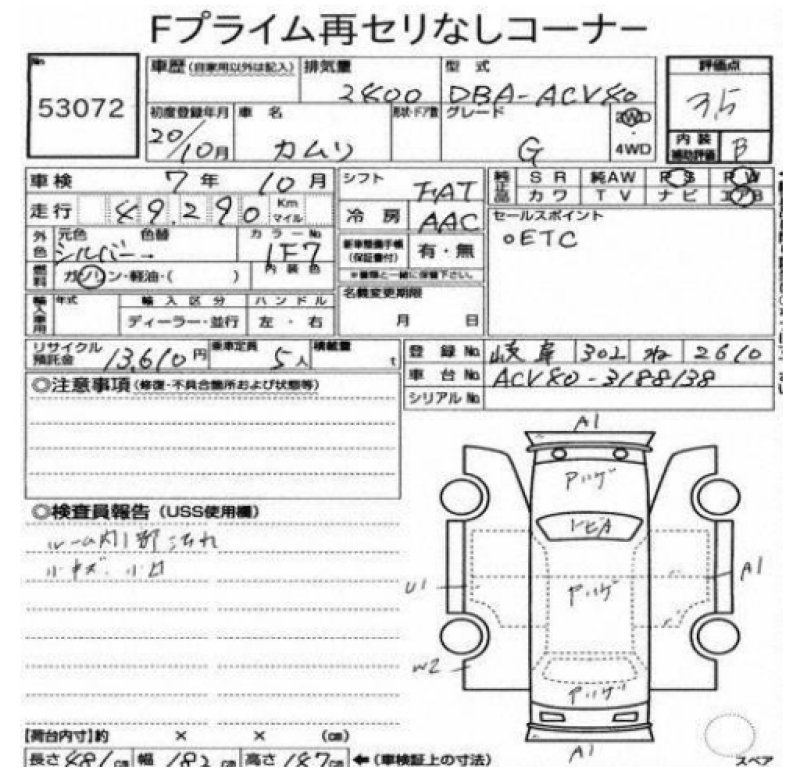 Fプライム再セリなしコーナー
No. 53072
車歴(自家用以外は記入) 排気量 2400 型式 DBA-ACV40
初度登録年月 20/10月 車名 カムリ 形状・ドア数 グレード G 2WD 4WD
評価点 3.5
内装補助評価 B
車検 7年 10月 シフト FAT
走行 49,290 Km マイル 冷房 AAC
純正品 SR 純AW PS PW
カワ TV ナビ エアB
外色 元色 シルバー 色替 カラーNo 1F7
新車整備手帳(保証書付) 有・無
※書類と一緒に保管下さい。
燃料 ガソリン・軽油・( ) 内装色
セールスポイント
○ETC
輸入車用 年式 輸入区分 ディーラー・並行 ハンドル 左・右
名義変更期限 月 日
リサイクル預託金 13,610円 乗車定員 5人 積載量 t
登録No. 岐阜 302 ね 2610
車台No. ACV40-3188138
シリアルNo.
◎注意事項(修復・不具合箇所および状態等)
◎検査員報告(USS使用欄)
ルーム内1部汚れ
小キズ・小凹
A1
アハゲ
トビA
U1
アハゲ
A1
W2
アハゲ
A1
スペア
【荷台内寸】約 × × (cm)
長さ481cm 幅182cm 高さ147cm ←(車検証上の寸法)